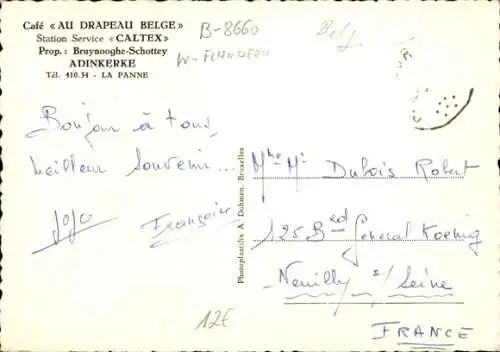 Café « AU DRAPEAU BELGE »
Station Service « CALTEX »
Prop. : Bruynooghe-Schottey
ADINKERKE
Tél. 410.34 - LA PANNE
B-8660
W-FLANDERN
Belg
Bonjour à tous,
meilleur souvenir...
Jojo
Françoise
12€
Photoplastifix A. Dohmen, Bruxelles
Mme Mr Dubois Robert
125 Bred General Koenig
Neuilly s/ Seine
FRANCE